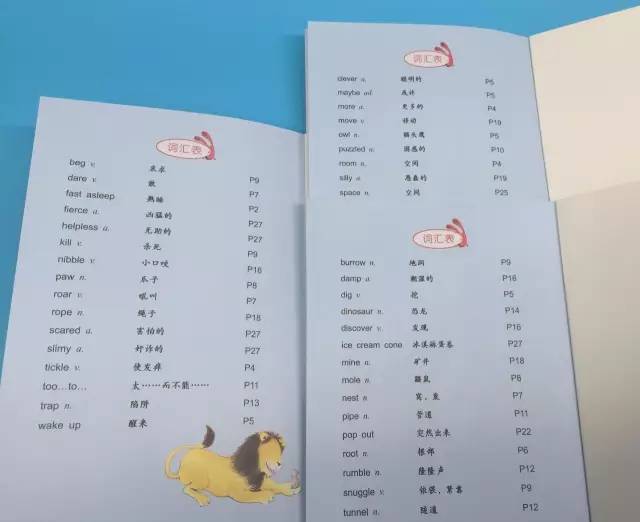 词汇表
beg v. 哀求 P9
dare v. 敢 P7
fast asleep 熟睡 P2
fierce a. 凶猛的 P27
helpless a. 无助的 P27
kill v. 杀死 P9
nibble v. 小口咬 P16
paw n. 爪子 P8
roar v. 吼叫 P7
rope n. 绳子 P18
scared a. 害怕的 P27
slimy a. 奸诈的 P27
tickle v. 使发痒 P4
too…to… 太……而不能…… P11
trap n. 陷阱 P13
wake up 醒来 P5
词汇表
clever a. 聪明的 P5
maybe ad. 或许 P5
more a. 更多的 P4
move v. 移动 P19
owl n. 猫头鹰 P5
puzzled a. 困惑的 P10
room n. 空间 P4
silly a. 愚蠢的 P5
space n. 空间 P25
词汇表
burrow n. 地洞 P9
damp a. 潮湿的 P16
dig v. 挖 P5
dinosaur n. 恐龙 P14
discover v. 发现 P16
ice cream cone 冰淇淋蛋卷 P27
mine n. 矿井 P18
mole n. 鼹鼠 P8
nest n. 窝、巢 P7
pipe n. 管道 P11
pop out 突然出来 P22
root n. 根部 P6
rumble n. 隆隆声 P12
snuggle v. 依偎、紧靠 P9
tunnel n. 隧道 P12